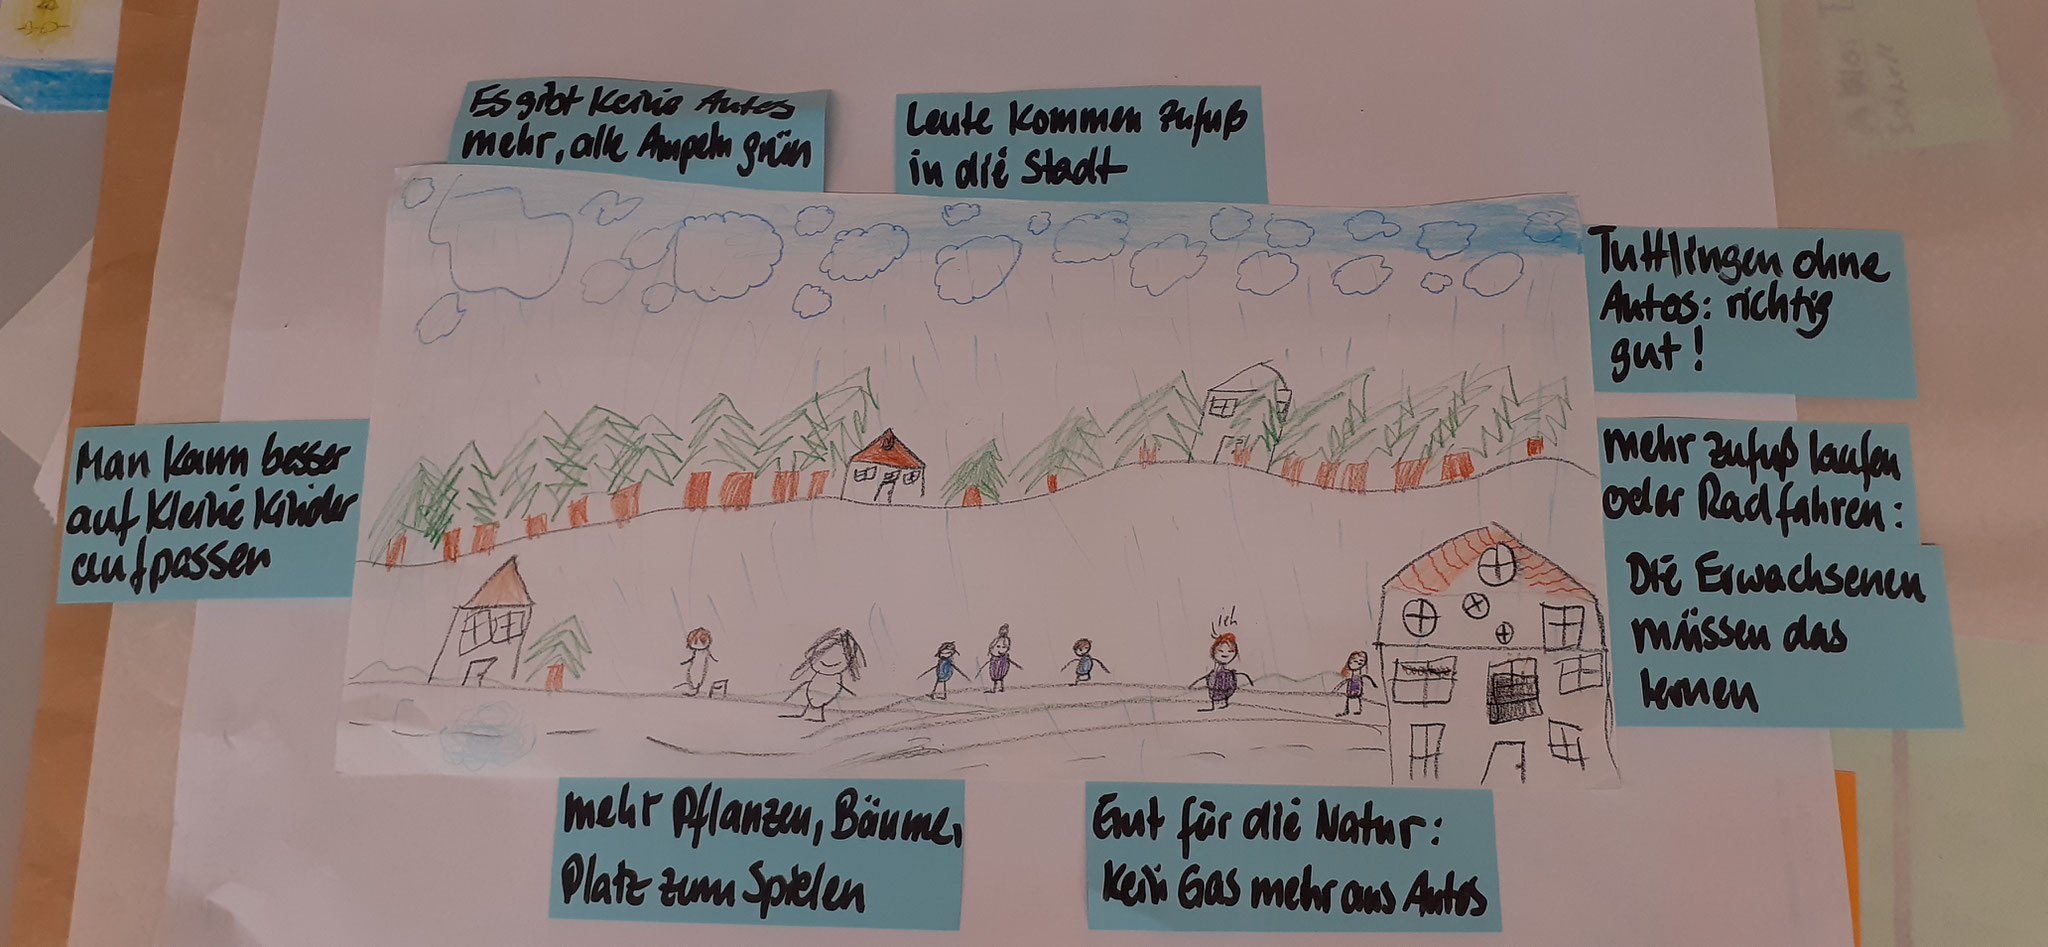 Es gibt keine Autos
mehr, alle Ampeln grün
Leute kommen zufuß
in die Stadt
Tuttlingen ohne
Autos: richtig
gut!
Man kann besser
auf kleine Kinder
aufpassen
mehr zufuß laufen
oder Radfahren:
Die Erwachsenen
müssen das
lernen
ich
mehr Pflanzen, Bäume,
Platz zum Spielen
Gut für die Natur:
Kein Gas mehr aus Autos